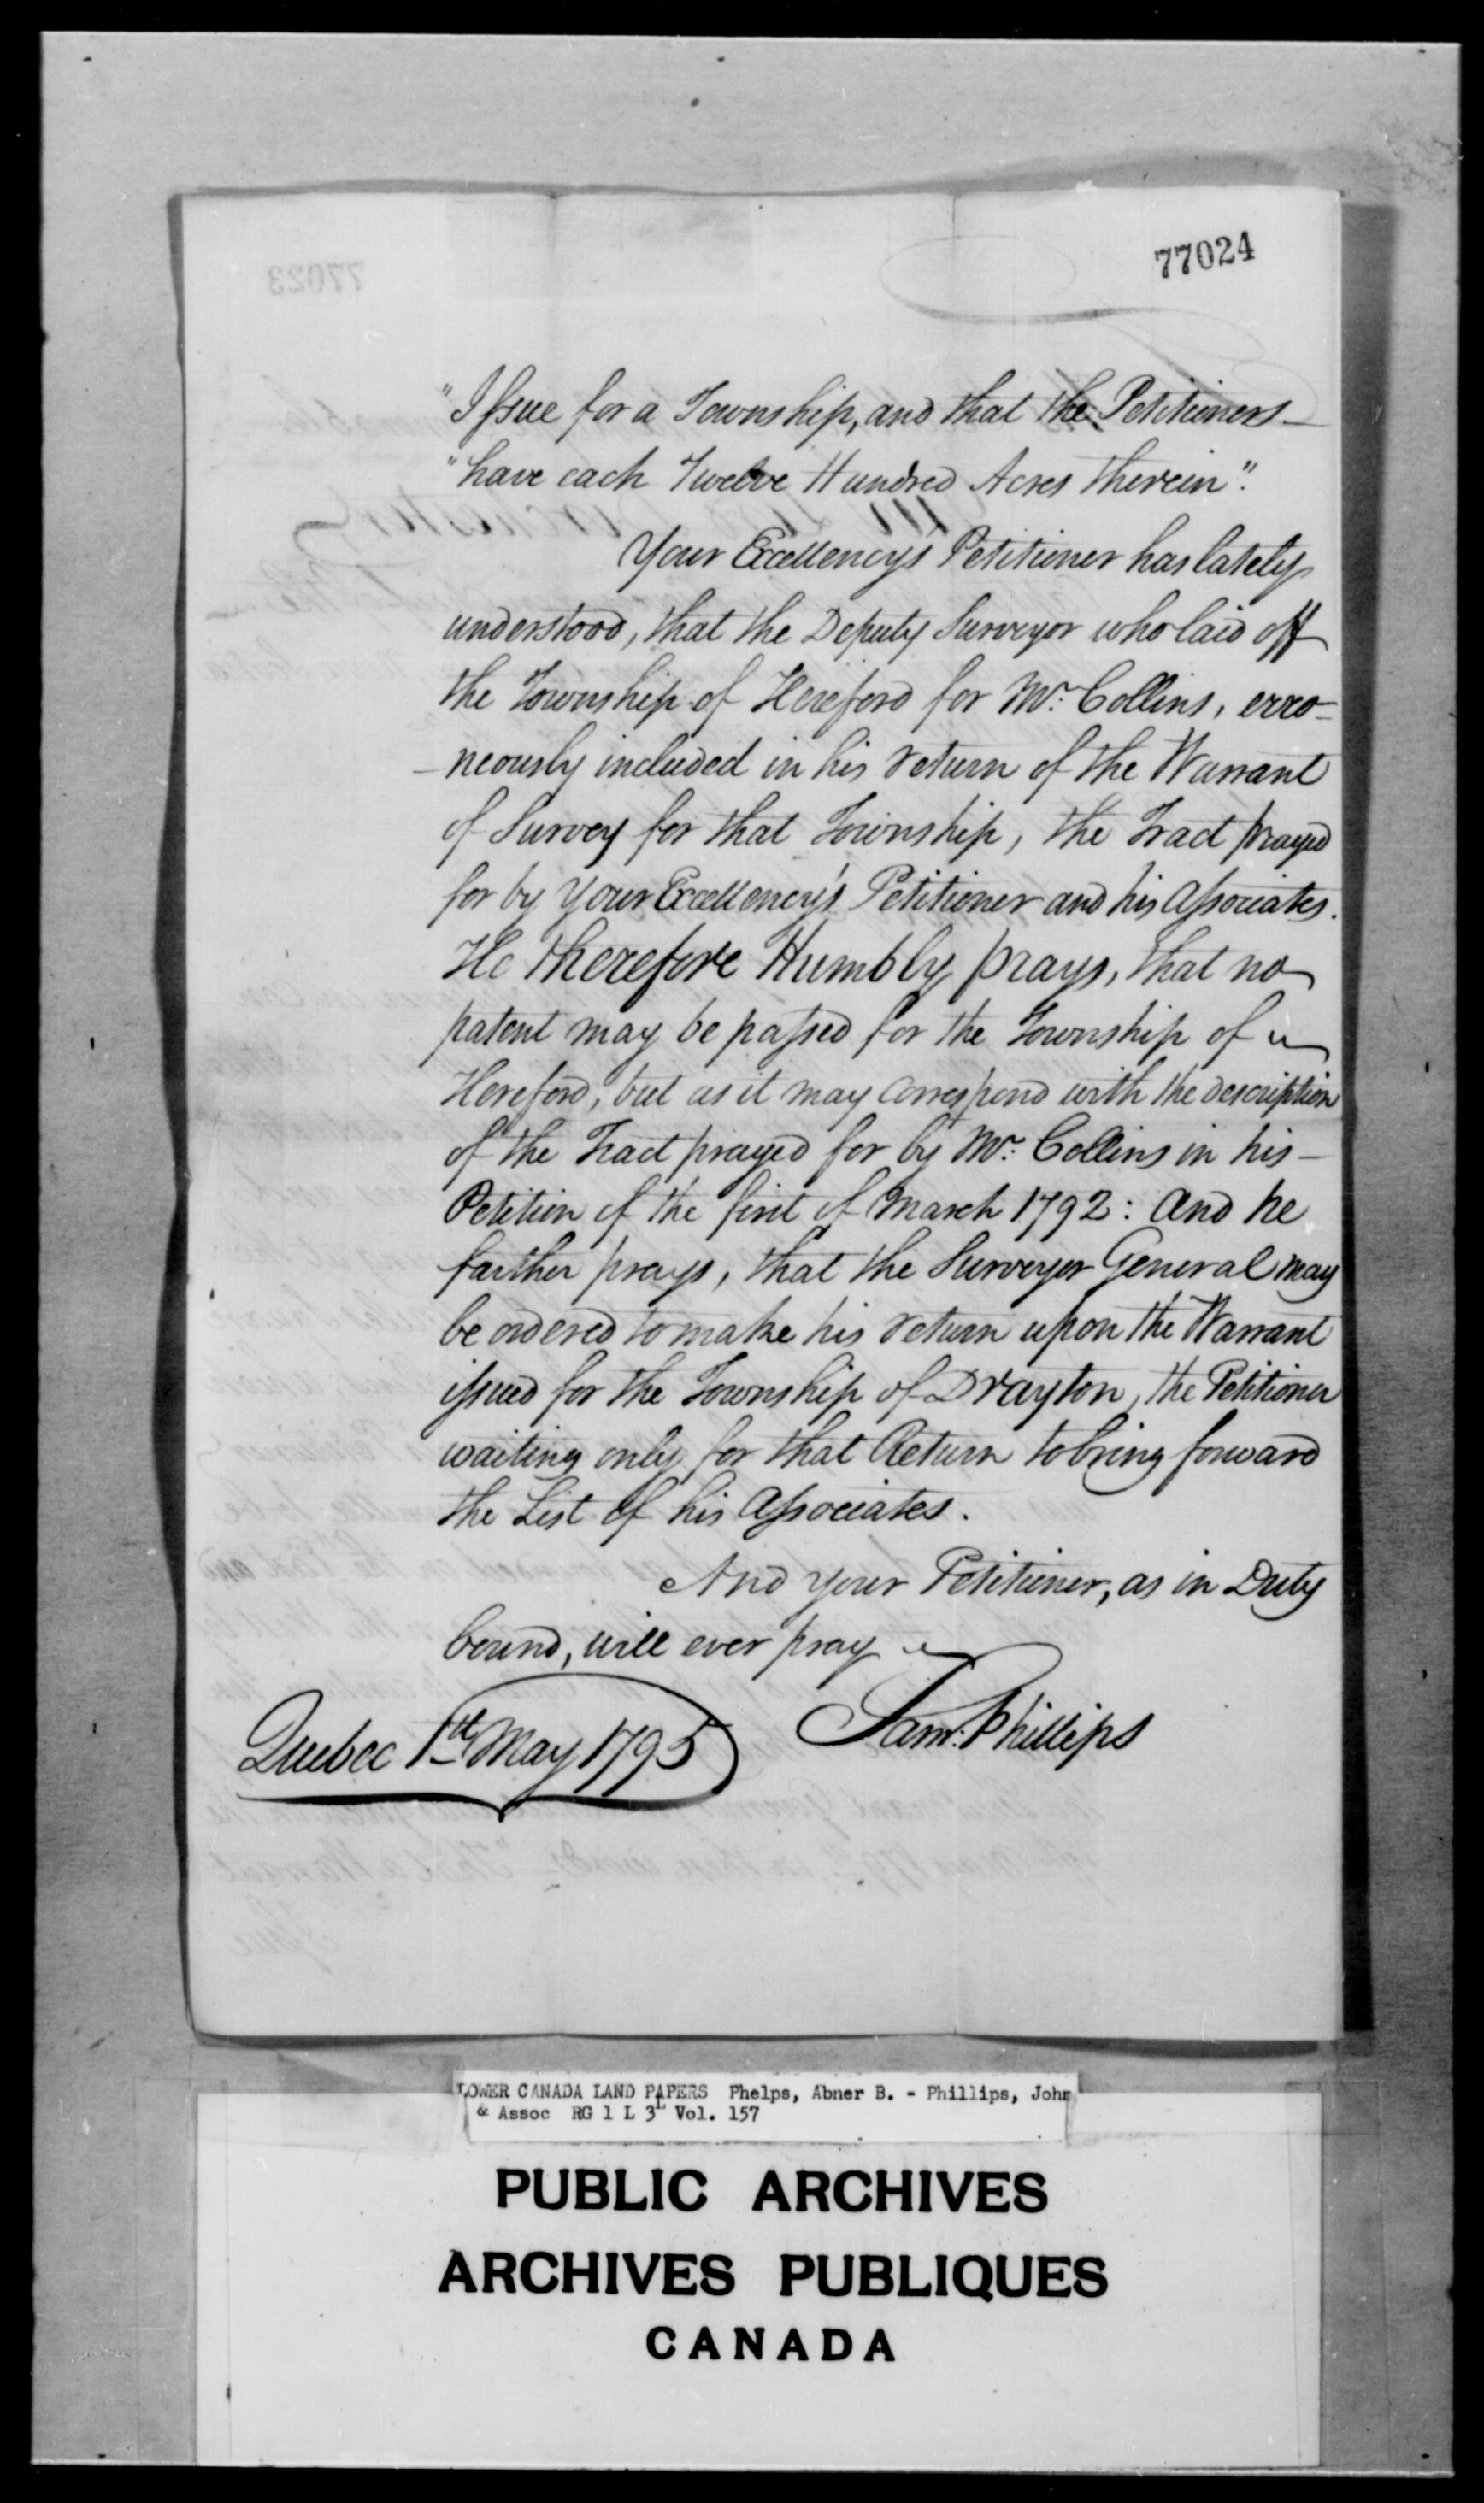 77024
"Issue for a Township, and that the Petitioners —
"have each Twelve Hundred Acres therein".
Your Excellency's Petitioner has lately
understood, that the Deputy Surveyor who laid off
the Township of Hereford for Mr. Collins, erro-
-neously included in his return of the Warrant
of Survey for that Township, the Tract prayed
for by Your Excellency's Petitioner and his Associates.
He therefore Humbly prays, that no
patent may be passed for the Township of
Hereford, but as it may correspond with the description
of the Tract prayed for by Mr. Collins in his —
Petition of the first of March 1792: And he
farther prays, that the Surveyor General may
be ordered to make his return upon the Warrant
issued for the Township of Drayton, the Petitioner
waiting only for that Return to bring forward
the List of his Associates.
And your Petitioner, as in Duty
bound, will ever pray
Sam. Phillips
Quebec 1st May 1795
LOWER CANADA LAND PAPERS Phelps, Abner B. - Phillips, John
& Assoc RG 1 L 3L Vol. 157
PUBLIC ARCHIVES
ARCHIVES PUBLIQUES
CANADA